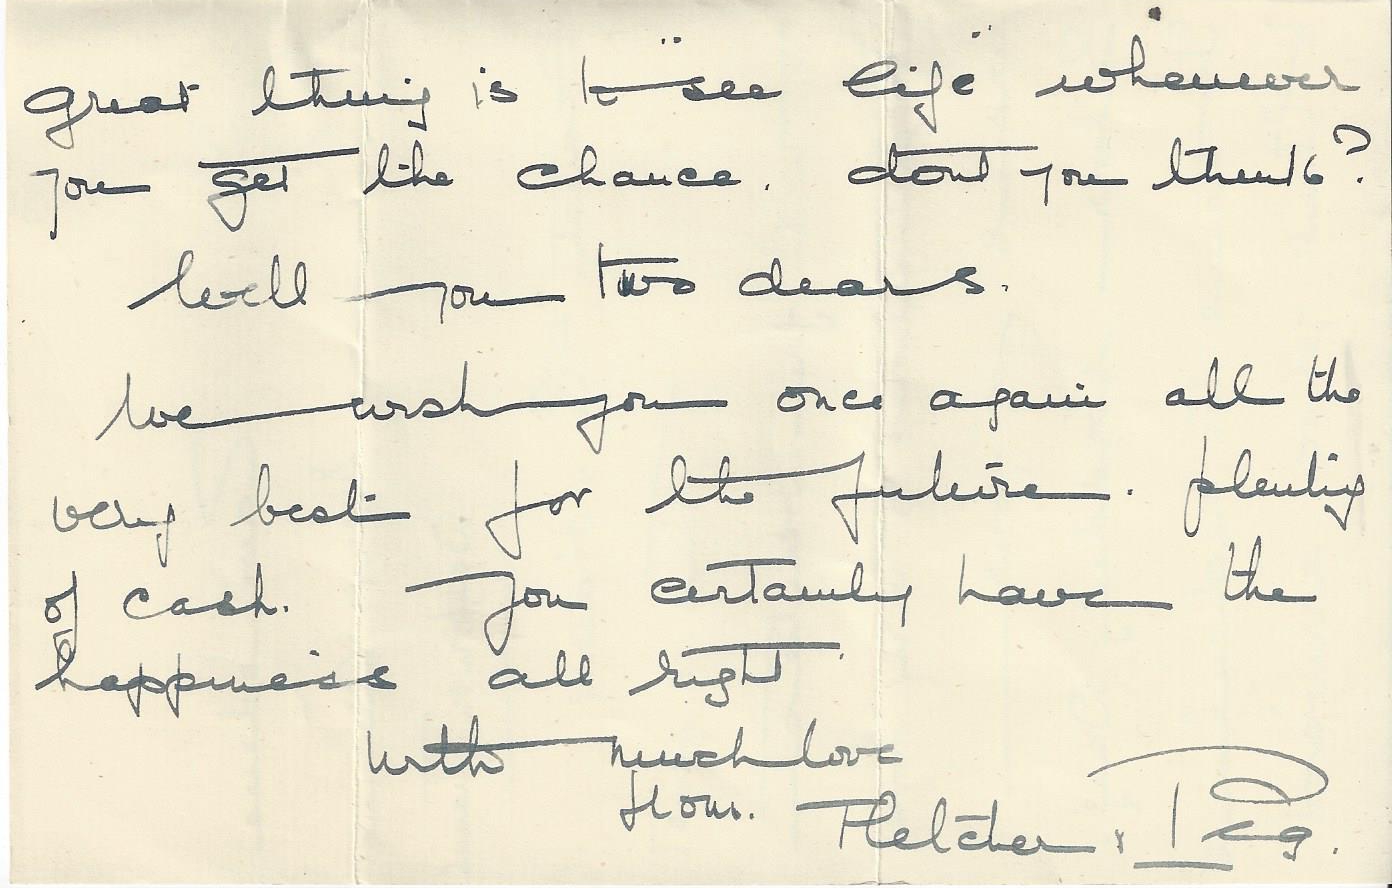 great thing is to "see life" whenever
you get the chance. dont you think?
Well you two dears.
We wish you once again all the
very best for the future. plenty
of cash. You certainly have the
happiness all right
with much love
from. Fletcher & Peg.